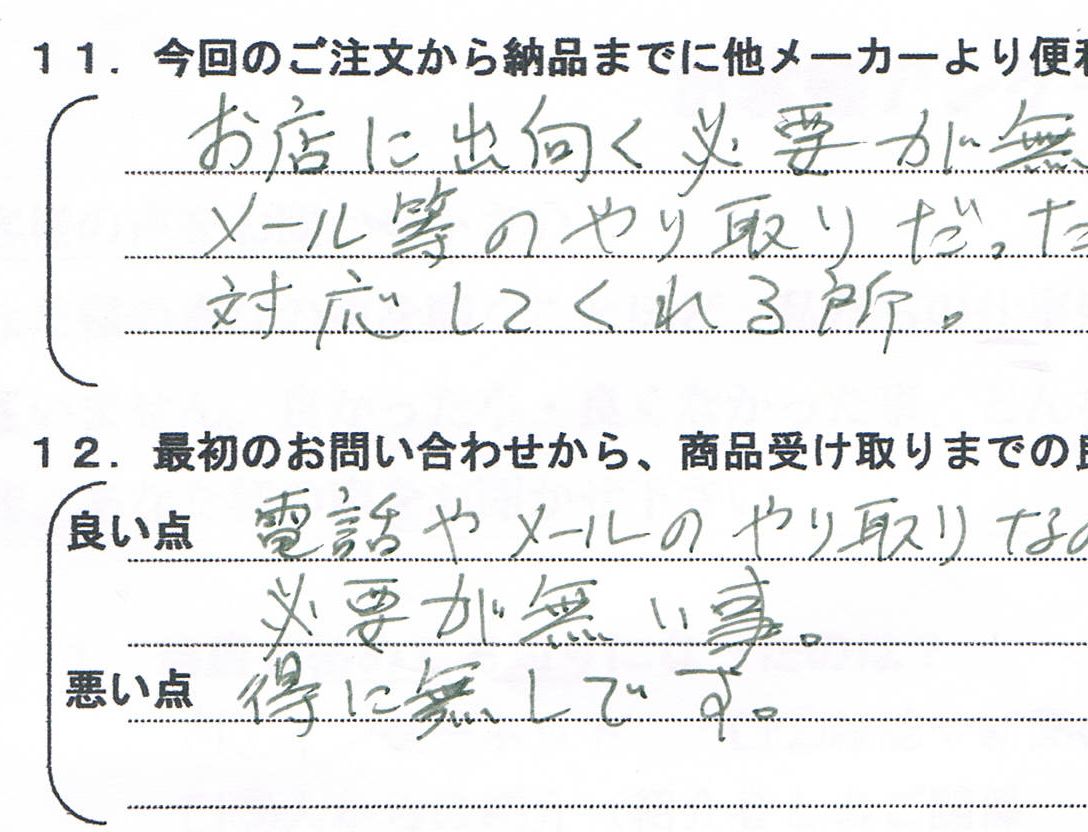 11．今回のご注文から納品までに他メーカーより便利
お店に出向く必要が無
メール等のやり取りだった
対応してくれる所。
12．最初のお問い合わせから、商品受け取りまでの良
良い点 電話やメールのやり取りなの
必要が無い事。
悪い点 得に無しです。